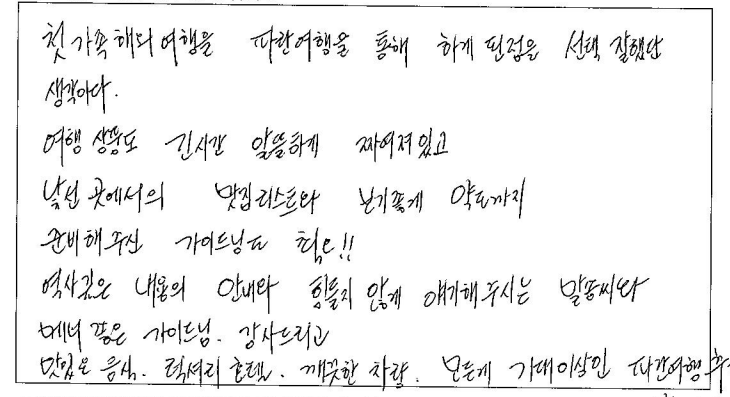 첫 가족 해외 여행을 파란여행을 통해 하게 된점을 선택 잘했단
생각이다.
여행 상품도 긴시간 알뜰하게 짜여져있고
낯선 곳에서의 맛집리스트와 보기좋게 약도까지
준비해주신 가이드님도 최고!!
역사깊은 내용의 안내와 힘들지 않게 얘기해주시는 말솜씨와
매너 좋은 가이드님. 감사드리고
맛있는 음식. 럭셔리 호텔. 깨끗한 차량. 모든게 기대이상인 파란여행